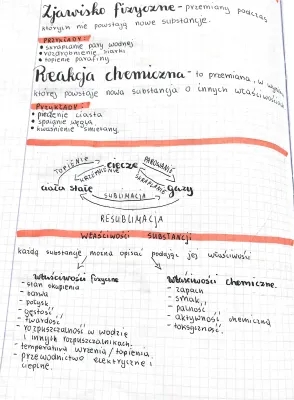 Zjawisko fizyczne - przemiany podczas
których nie powstają nowe substancje.
PRZYKŁADY:
• skraplanie pary wodnej
• rozdrobnienie siarki
• topienie parafiny
Reakcja chemiczna - to przemiana, w wyniku
której powstaje nowa substancja o innych właściwościach
PRZYKŁADY:
• pieczenie ciasta
• spalanie węgla
• kwaśnienie śmietany
TOPIENIE
ciecze
PAROWANIE
KRZEPNIĘCIE
SKRAPLANIE
ciała stałe
gazy
SUBLIMACJA
RESUBLIMACJA
WŁAŚCIWOŚCI SUBSTANCJI
każdą substancję można opisać podając jej właściwości
właściwości fizyczne
- stan skupienia
- barwa
- połysk
- gęstość
- twardość
- rozpuszczalność w wodzie
i innych rozpuszczalnikach
- temperatura wrzenia/topienia
- przewodnictwo elektryczne i
cieplne.
właściwości chemiczne
- zapach
- smak
- palność
- aktywność chemiczna
- toksyczność